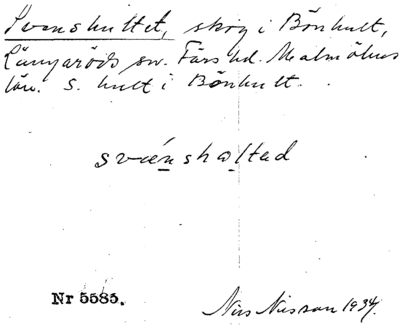 Svenshultet, skog i Bönhult,
Långaröds sn. Färs hd. Malmöhus
län. S. hult i Bönhult.
svénshaltad
Nr 5585.
Nils Nilsson 1934.